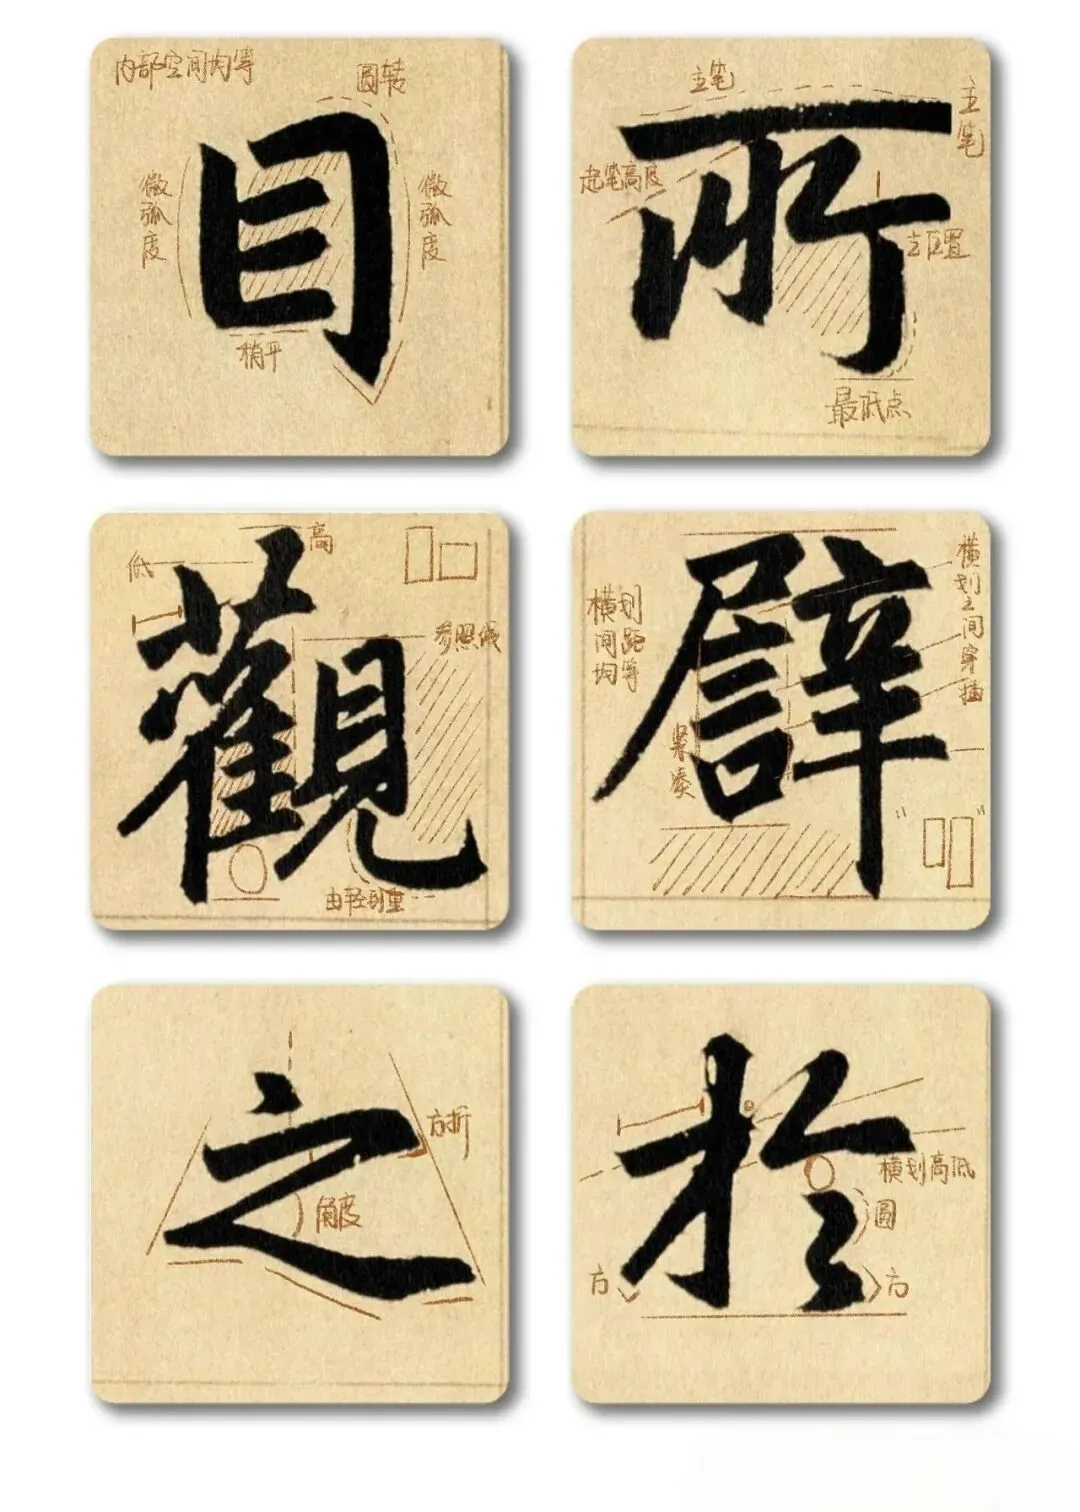 内部空间均等
圆转
微弧度
目
微弧度
稍平
主笔
主笔
起笔高度
所
最低点
高
低
参照线
觀
由轻到重
横划之间穿插
横划
间距
均等
譬
紧凑
之
方折
角度
於
横划高低
圆
方
方